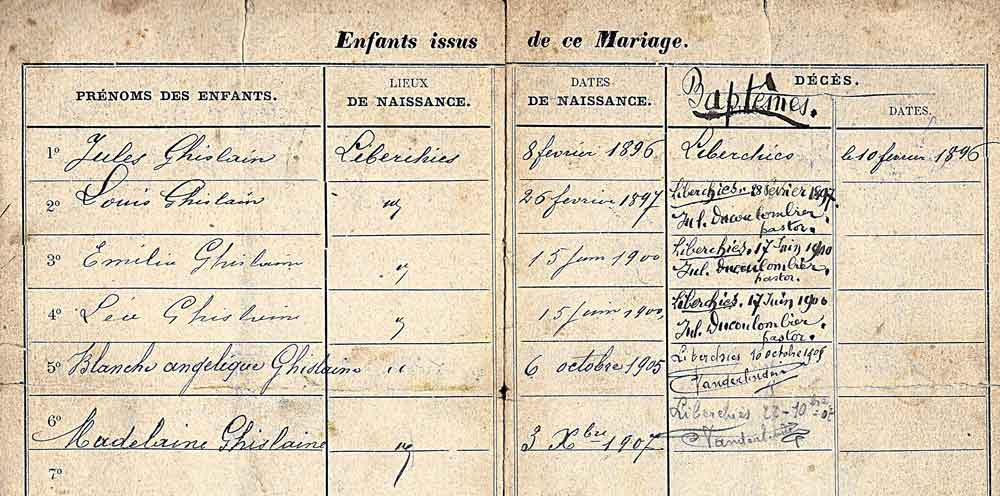 Enfants issus de ce Mariage.
PRÉNOMS DES ENFANTS. LIEUX DE NAISSANCE. DATES DE NAISSANCE. Baptêmes. DÉCÈS. DATES.
1º Jules Ghislain Liberchies 8 février 1896 Liberchies le 10 février 1896
2º Louis Ghislain " 26 février 1897 Liberchies. 28 février 1897.
Jul. Ducoulombier
pastor.
3º Emilia Ghislaine " 15 juin 1900 Liberchies. 17 Juin 1900
Jul. Ducoulombier
pastor.
4º Ghislaine " 15 juin 1900 Liberchies. 17 Juin 1900
Jul. Ducoulombier.
pastor.
5º Blanche angélique Ghislaine " 6 octobre 1905 Liberchies 10 octobre 1905
6º Madelaine Ghislaine " 3 Xbre 1907 Liberchies
7º